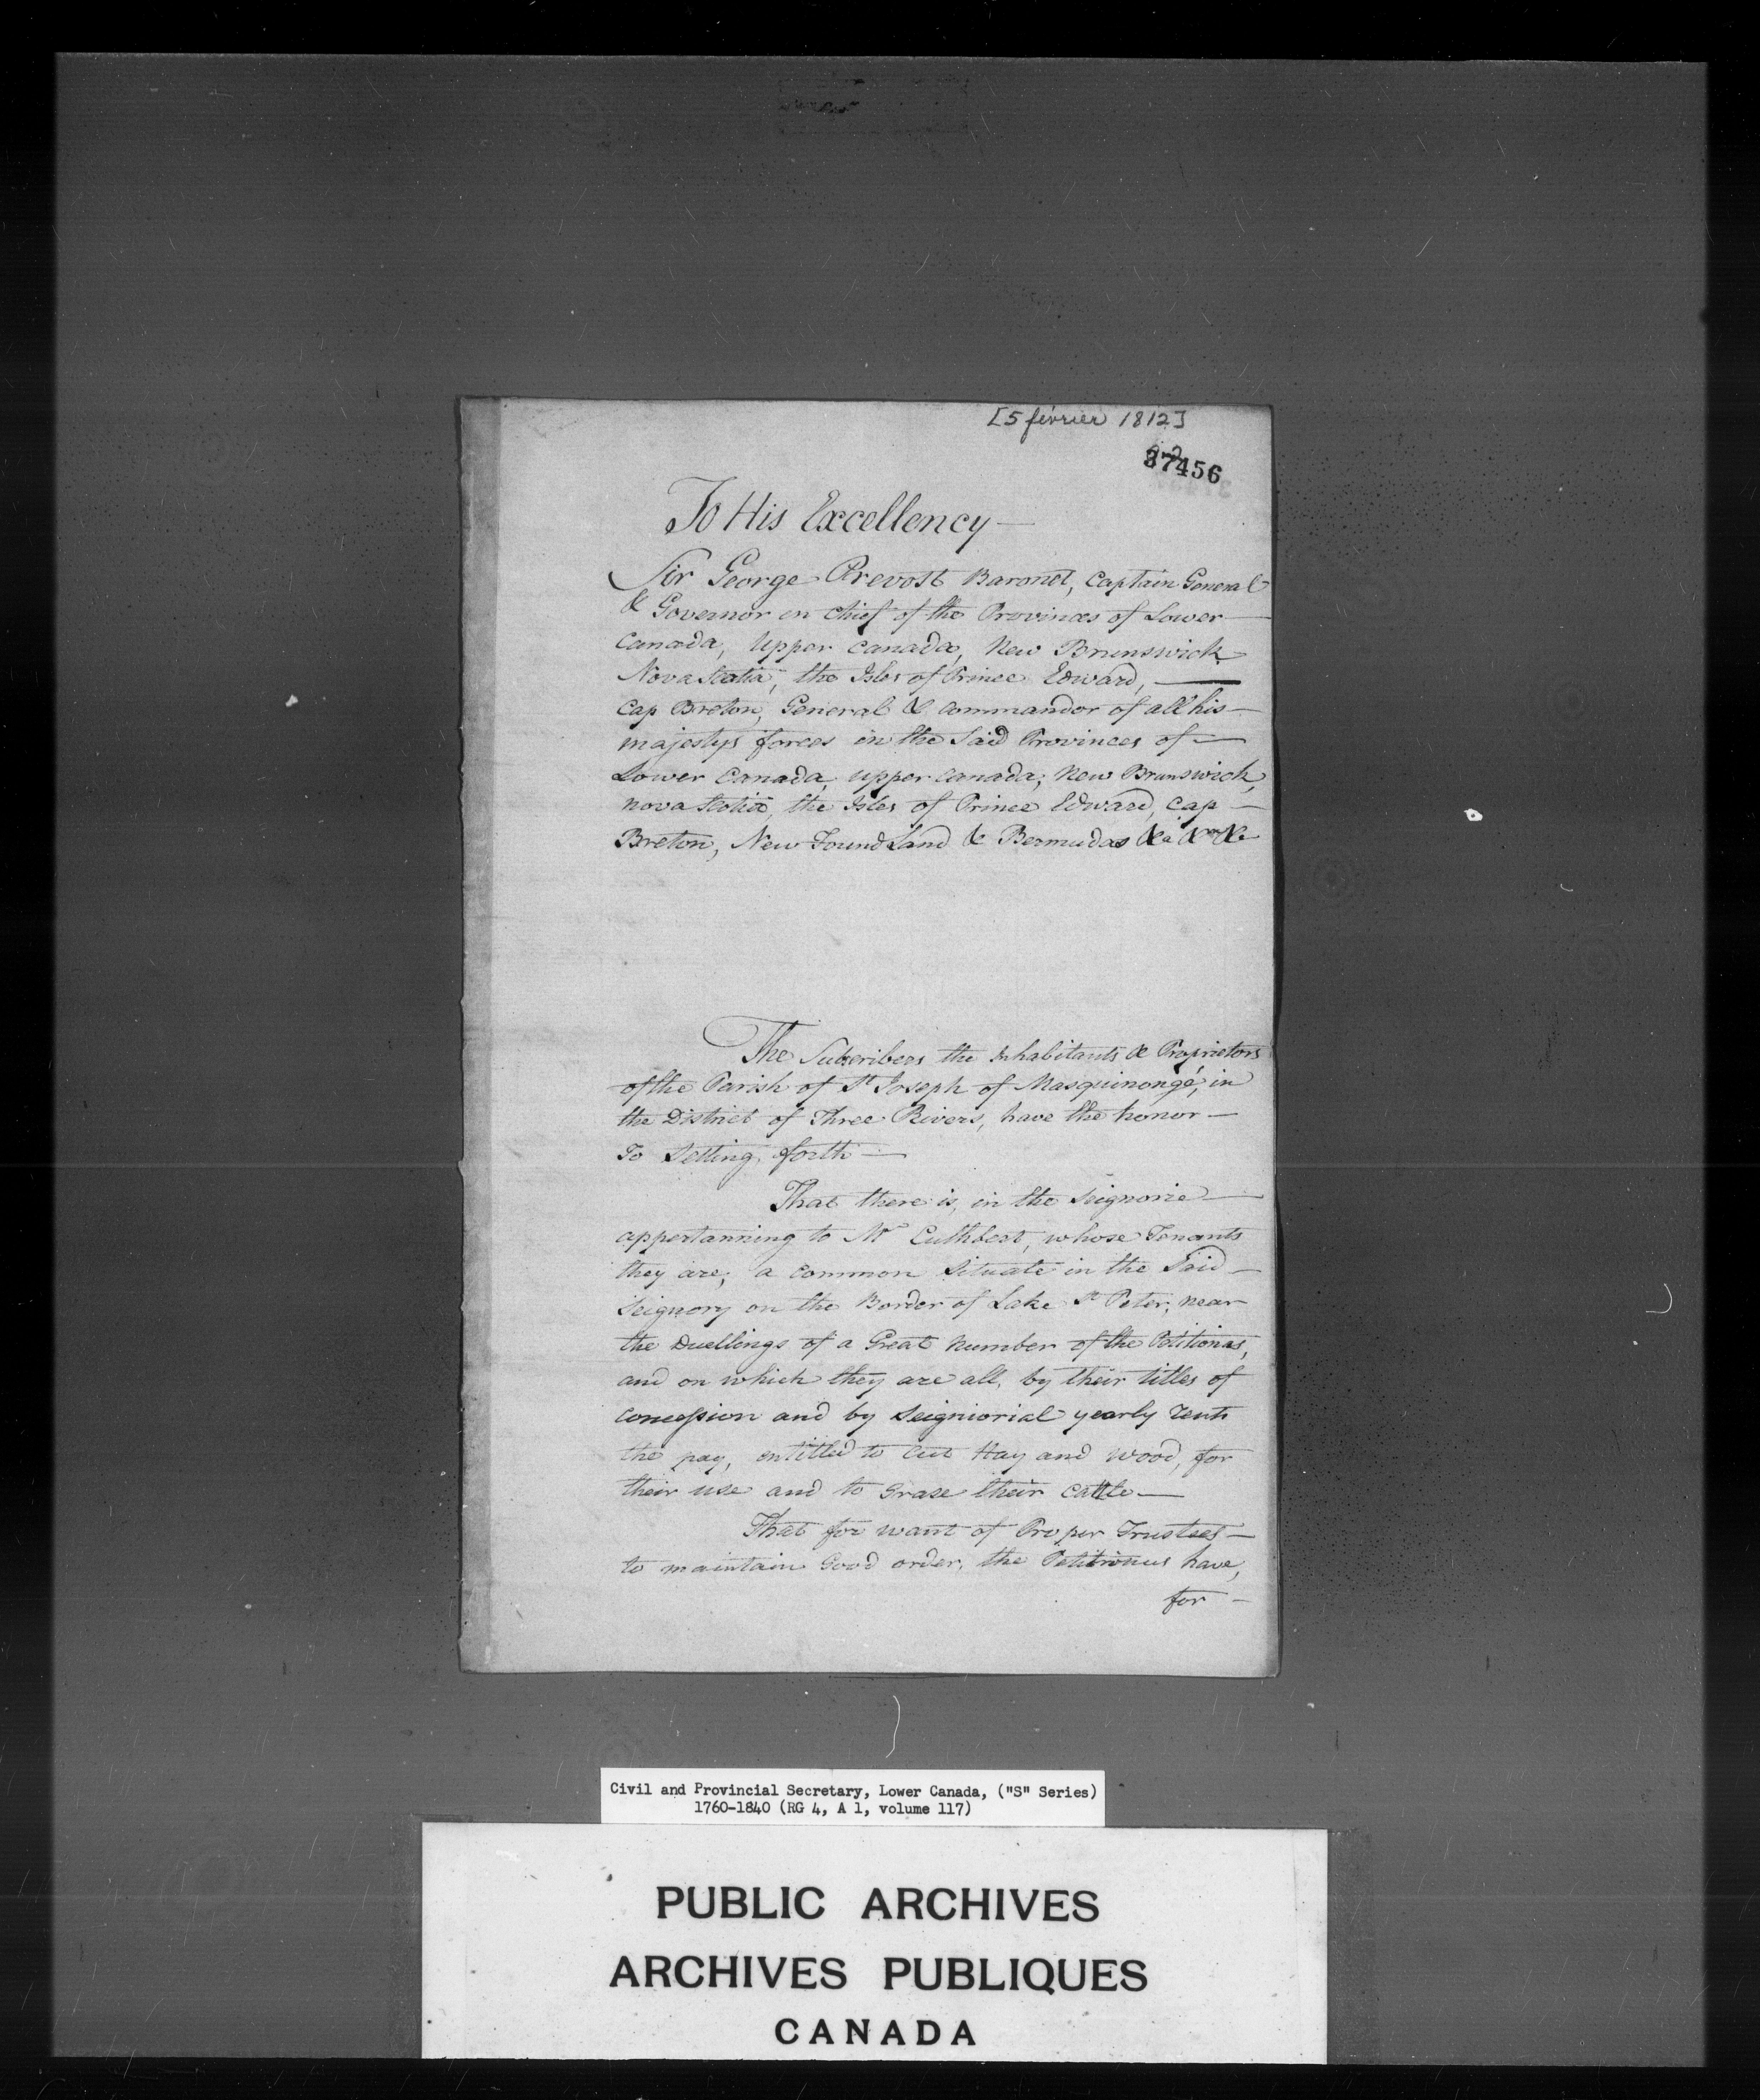 [5 février 1812]
37456
To His Excellency —
Sir George Prevost Baronet, Captain General
& Governor en chief of the Provinces of Lower —
Canada, Upper Canada, New Brunswick
Nova Scotia, the Isles of Prince Edward, —
Cap Breton, General & Commandor of all his —
majestys forces in the Said Provinces of —
Lower Canada, upper Canada, New Brunswick,
nova Scotia, the Isles of Prince Edward, Cap —
Breton, New Found Land & Bermudas &a &a &a
The Subscribers the Inhabitants & Proprietors
of the Parish of St Joseph of Masquinongé, in
the District of Three Rivers, have the honor —
To Setting forth —
That there is, in the Seignorie —
appertanning to Mr Cuthbert, whose Tenants
they are, a common Situate in the Said —
Seignory on the Border of Lake St Peter, near
the Duellings of a Great Number of the Petitioners,
and on which they are all, by their titles of
Concession and by Seigniorial yearly rents
the pay, entitled to Cut Hay and Wood, for
their use and to Grase their Cattle —
That for want of Proper Trustees —
to maintain Good order, the Petitioners have,
for —
Civil and Provincial Secretary, Lower Canada, ("S" Series)
1760-1840 (RG 4, A 1, volume 117)
PUBLIC ARCHIVES
ARCHIVES PUBLIQUES
CANADA